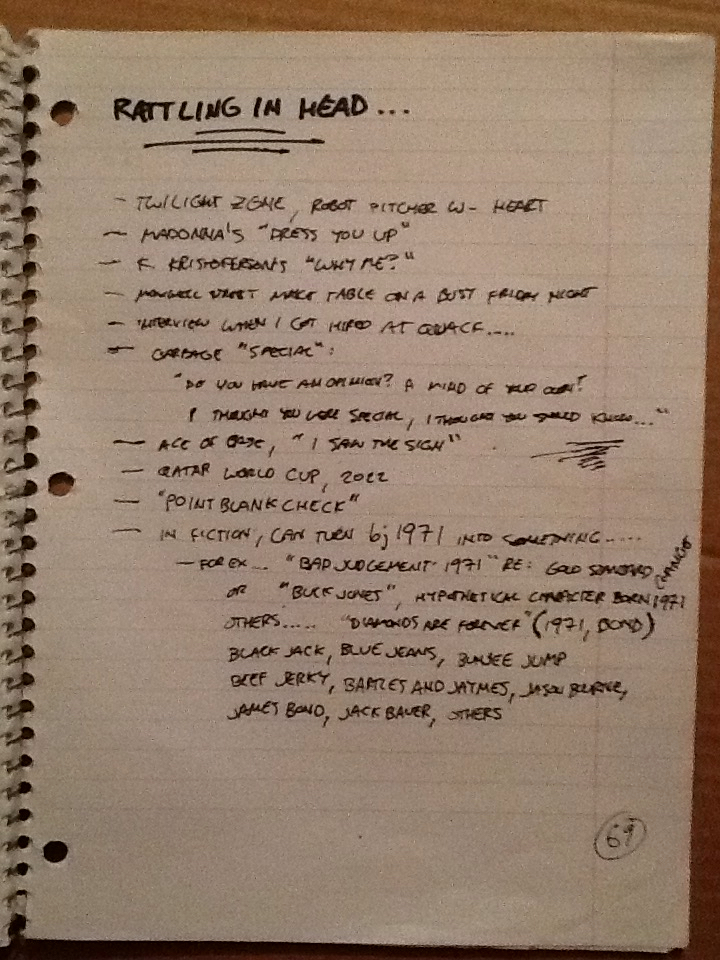 RATTLING IN HEAD...
- TWILIGHT ZONE, ROBOT PITCHER W- HEART
- MADONNA'S "DRESS YOU UP"
- K. KRISTOFERSON'S "WHY ME?"
- STREET MAKE TABLE ON A BUSY FRIDAY NIGHT
- INTERVIEW WHEN I GOT HIRED AT QUACK....
- GARBAGE "SPECIAL":
"DO YOU HAVE AN OPINION? A MIND OF YOUR OWN?
I THOUGHT YOU WERE SPECIAL, I THOUGHT YOU SHOULD KNOW..."
- ACE OF BASE, "I SAW THE SIGN"
- QATAR WORLD CUP, 2022
- "POINT BLANK CHECK"
- IN FICTION, CAN TURN bj1971 INTO SOMETHING.....
- FOR EX... "BAD JUDGEMENT 1971" RE: GOLD STANDARD CHANGE
OR "BUCK JONES", HYPOTHETICAL CHARACTER BORN 1971
OTHERS..... "DIAMONDS ARE FOREVER" (1971, BOND)
BLACK JACK, BLUE JEANS, BUNJEE JUMP
BEEF JERKY, BARTLES AND JAYMES, JASON BOURNE,
JAMES BOND, JACK BAUER, OTHERS
69